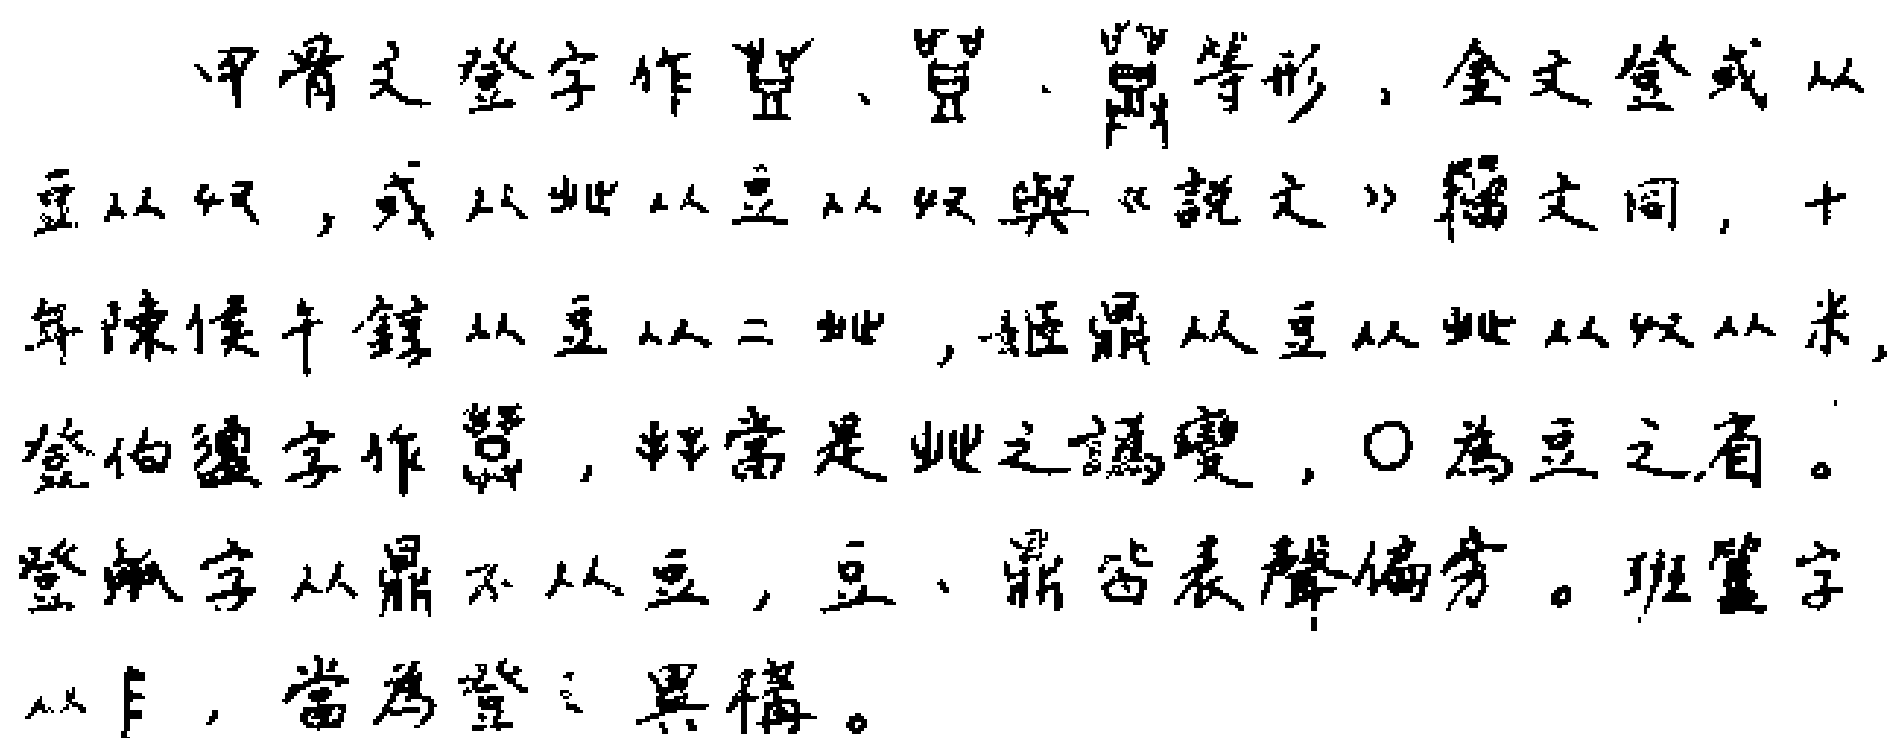 甲骨文登字作、、等形，金文登或从
豆从収，或从癶从豆从収與《説文》籀文同，十
年陳侯午錞从豆从二癶，姬鼎从豆从癶从収从米，
登伯盨字作，當是癶之譌變，〇為豆之省。
登鼎字从鼎不从豆，豆、鼎皆表聲偏旁。班簋字
从，當為登之異構。